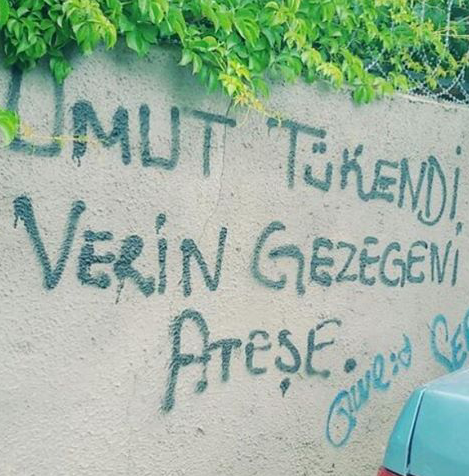 UMUT TÜKENDİ
VERİN GEZEGENİ
ATEŞE.